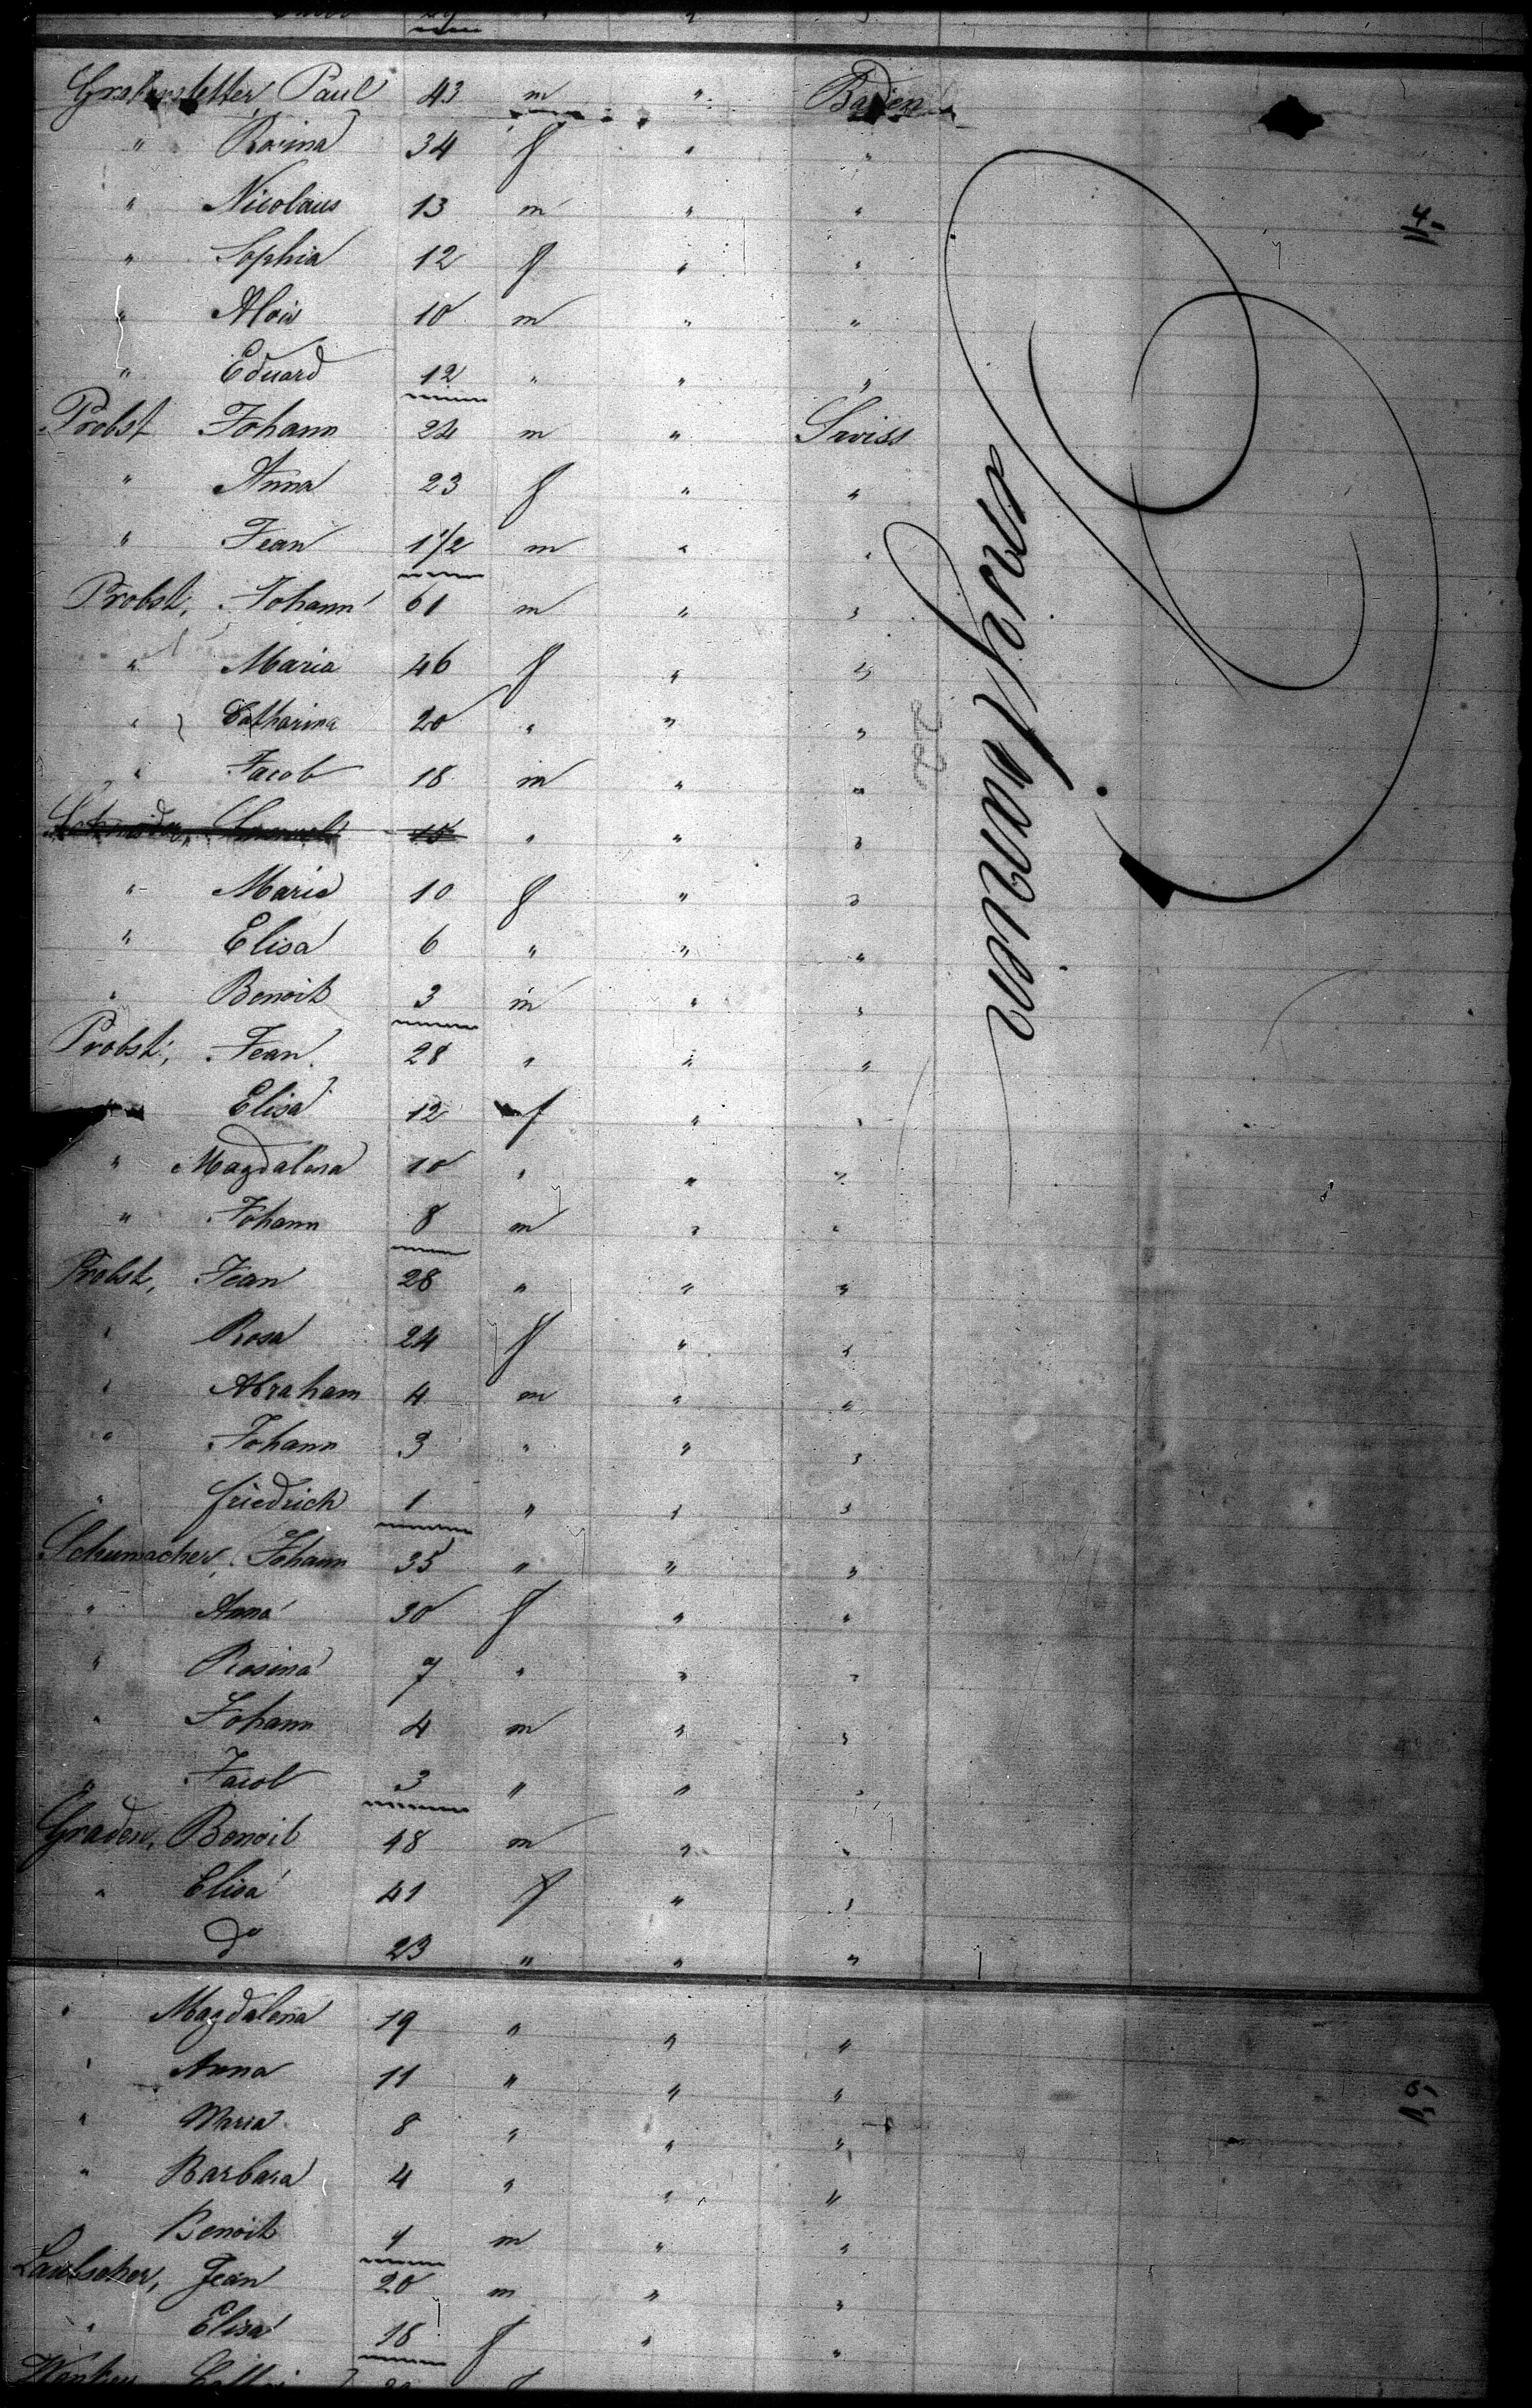 Paul 43 m " Baden
" Rosina 34 f " "
" Nicolaus 13 m " "
" Sophia 12 f " "
" Alois 10 m " "
" Eduard 12 " " "
Probst Johann 24 m " Swiss
" Anna 23 f " "
" Jean 1 1/2 m " "
Probst, Johann 61 m " "
" Maria 46 f " "
" Catharina 20 " " "
" Jacob 18 m " "
15 " " "
" Maria 10 f " "
" Elisa 6 " " "
" Benoit 3 m " "
Probst, Jean 28 " " "
" Elisa 12 f " "
" Magdalena 10 " " "
" Johann 8 m " "
Probst, Jean 28 " " "
" Rosa 24 f " "
" Abraham 4 m " "
" Johann 3 " " "
" Friedrich 1 " " "
Schumacher, Johann 35 " " "
" Anna 30 f " "
" Rosina 7 " " "
" Johann 4 m " "
" Jacob 3 " " "
Graden, Benoit 48 m " "
" Elisa 41 f " "
do 23 " " "
" Magdalena 19 " " "
" Anna 11 " " "
" Maria 8 " " "
" Barbara 4 " " "
Benoit 1 m " "
Laubscher, Jean 20 m " "
" Elisa 18 f " "